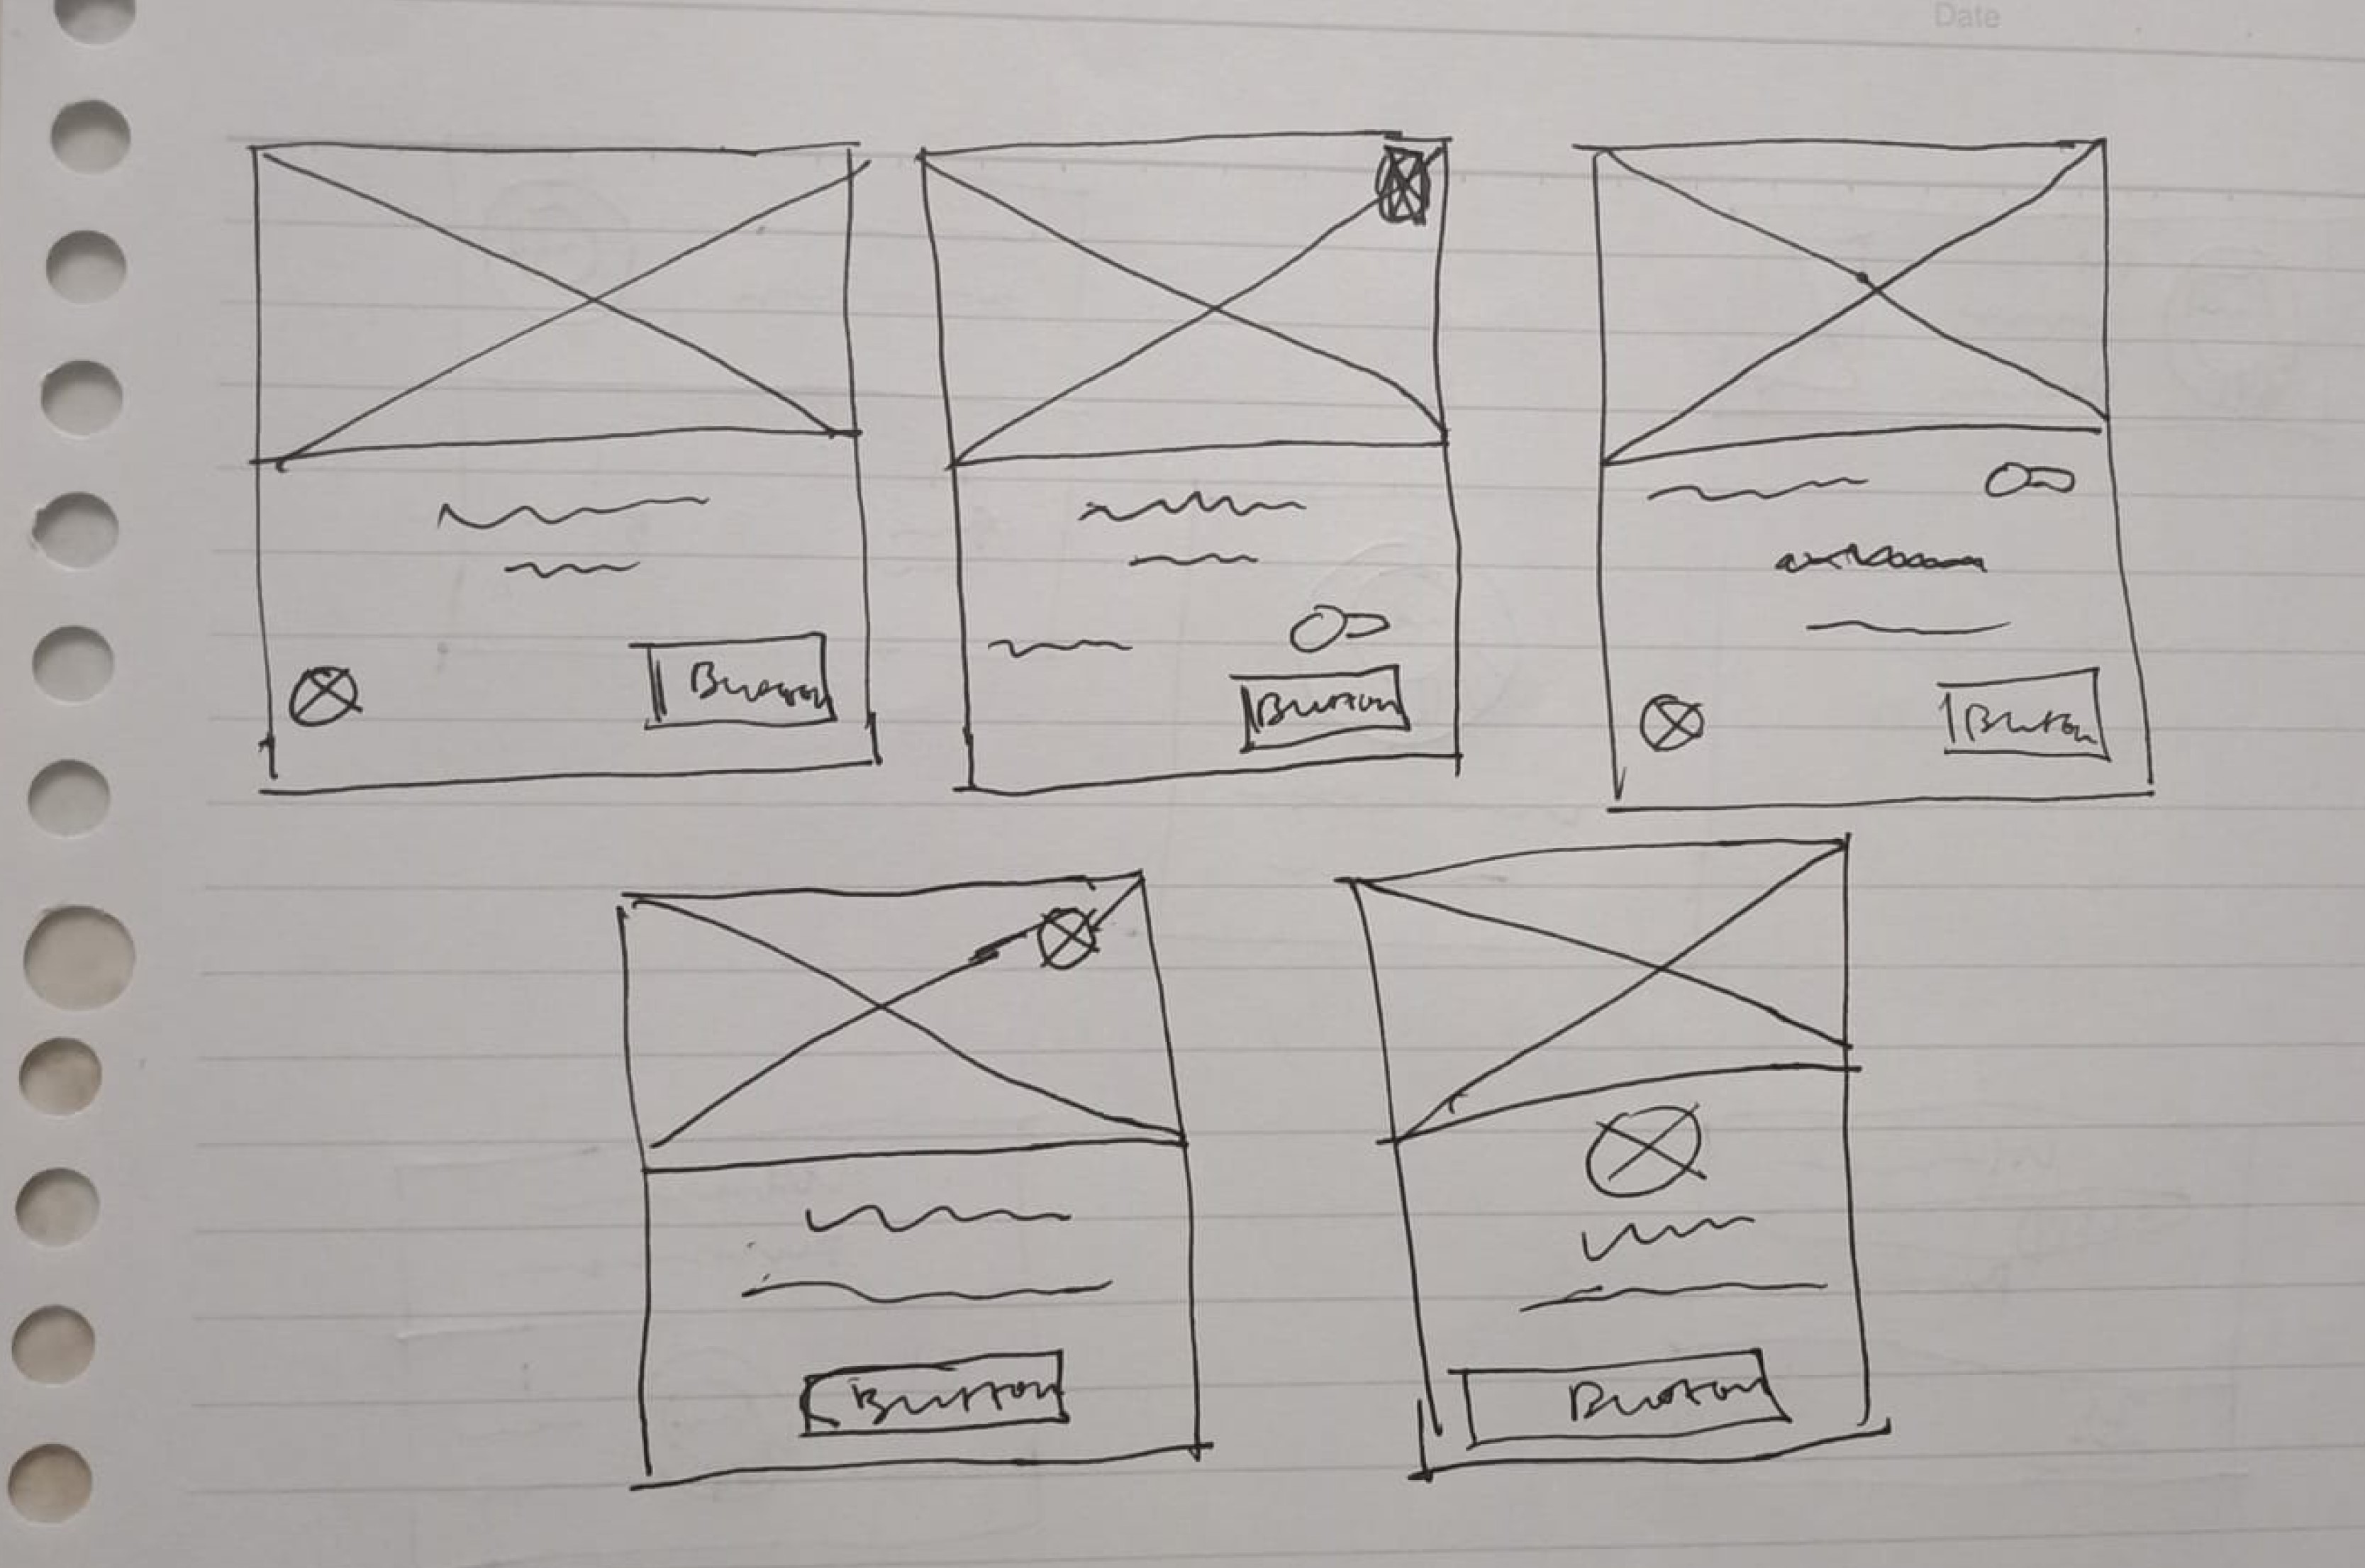 Date
Button
Button
Button
Button
Button